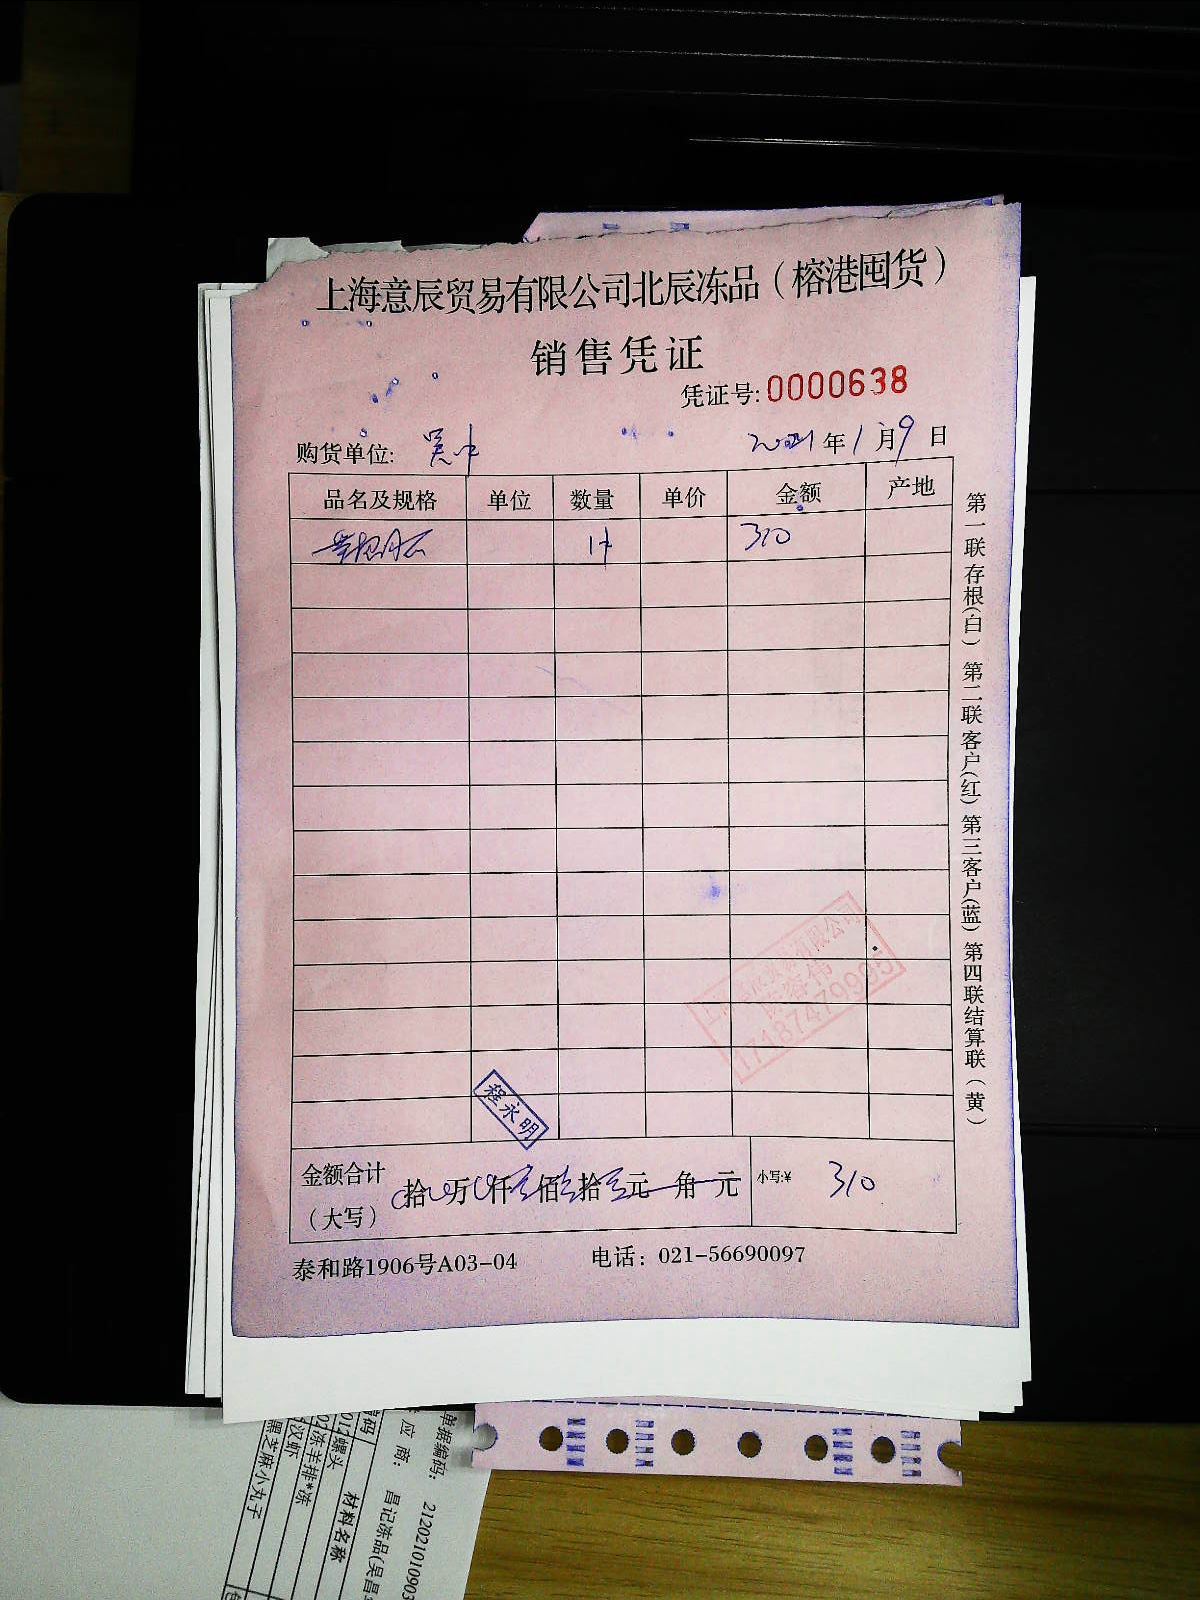 上海意辰贸易有限公司北辰冻品（榕港囤货）
销售凭证
凭证号:0000638
购货单位: 吴中 2021年1月9日
品名及规格 单位 数量 单价 金额 产地
1件 310
第一联存根(白) 第二联客户(红) 第三客户(蓝) 第四联结算联(黄)
有限公司
17187479995
程永明
金额合计（大写） 拾 万 仟 佰 拾 元 角 元 小写:¥ 310
泰和路1906号A03-04 电话: 021-56690097
单据编码: 212021010903
应商: 昌记冻品(吴昌
材料名称
螺头
冻羊排*冻
汉虾
黑芝麻小丸子